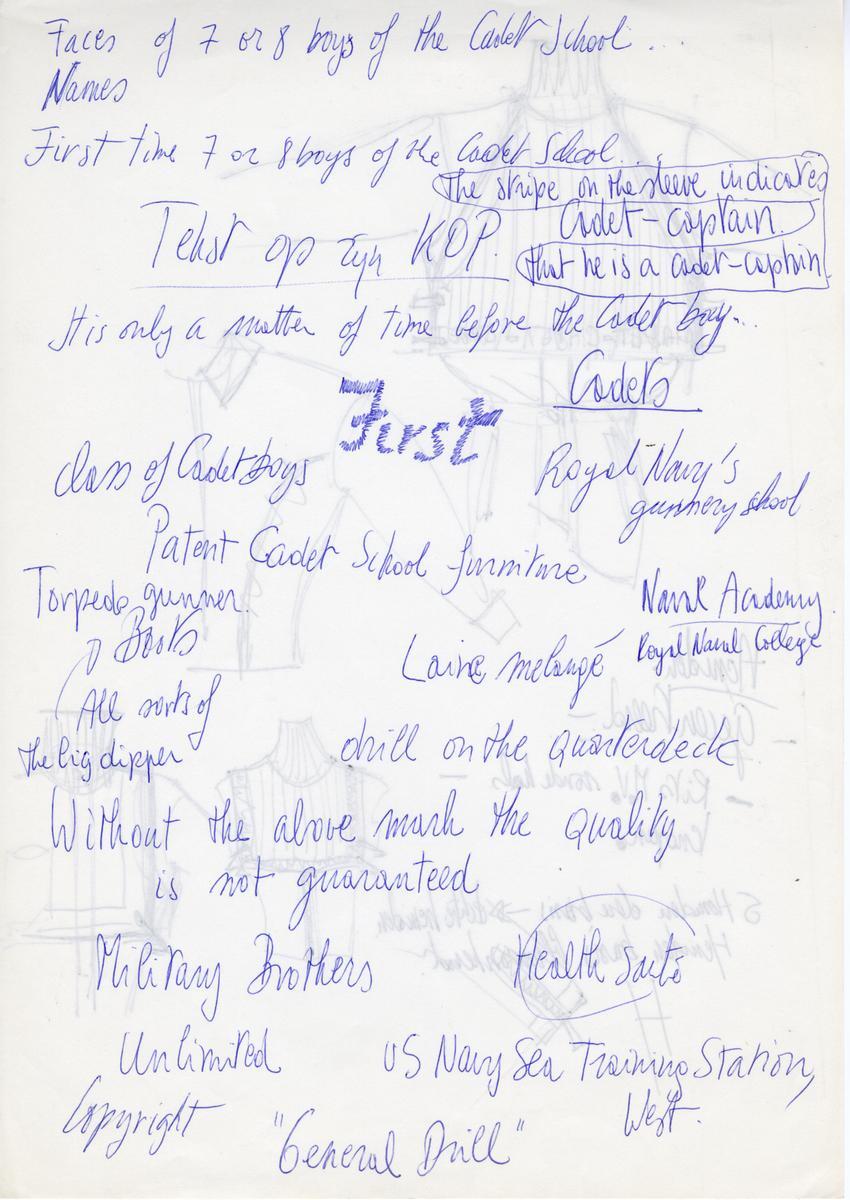 Faces of 7 or 8 boys of the Cadet School ...
Names
First time 7 or 8 boys of the Cadet School ...
the stripe on the sleeve indicates
Tekst op zijn KOP.
Cadet-captain.
that he is a cadet-captain
It is only a matter of time before the Cadet boy...
First
Cadets
class of Cadet boys
Royal Navy's
gunnery school
Patent Cadet School furniture
Torpedo gunner.
Naval Academy
Royal Naval College
Boots
Laine melangé
All sorts of
the big dipper
drill on the quarterdeck
Without the above mark the quality
is not guaranteed
Military Brothers
Health
Unlimited
US Navy Sea Training Station,
West.
Copyright
"General Drill"